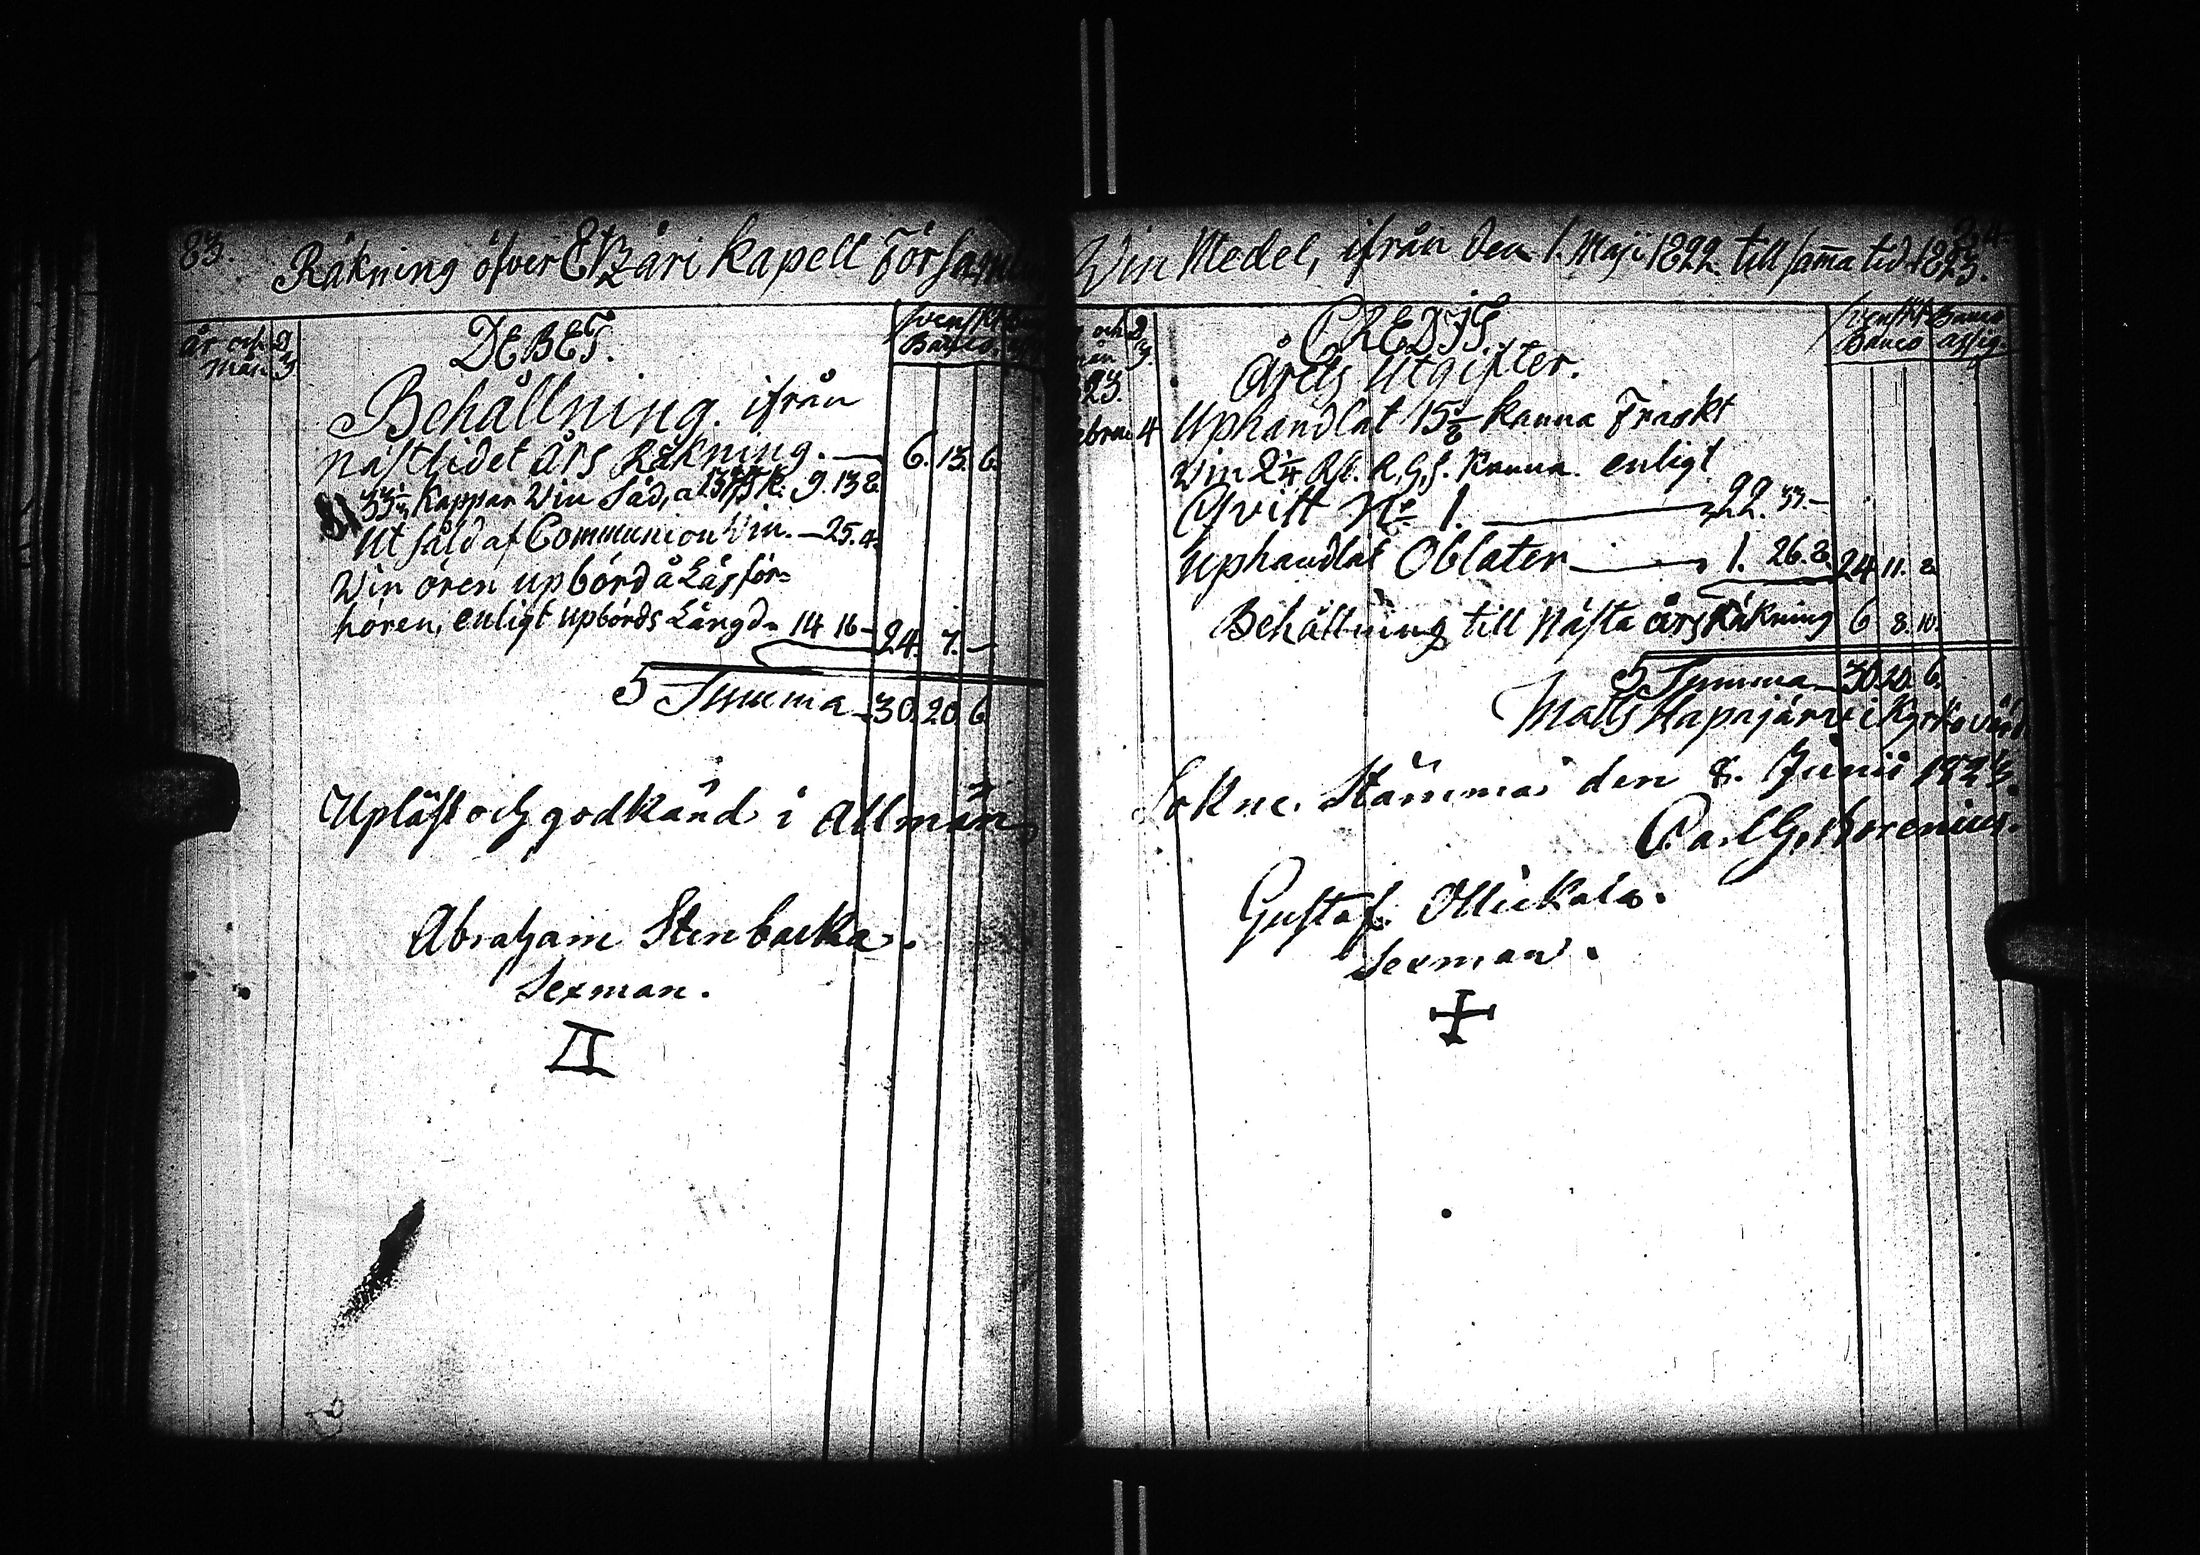 83.
Räkning öfver Etzäri Kapell Församl
år och
Mån
DEBET.
Svenskt
Banco.
Behållning ifrån
nästlidet års Räkning. — 6. 13. 6.
33 1/3 kappar Vin Säd, a 13 k. 9. 13 8
Ut såld af Communion Vin. — 25. 4.
Vin ören upbörd å Läsför=
hören, enligt upbörds Längd. 14 16 — 24. 7. —
Summa — 30. 20. 6
Upläst och godkänd i Allmän
Abraham Stenbacka.
Sexman.
84.
Vin Medel, ifrån den 1. Maji 1822 till samma tid 1823.
och
mån
23.
CREDIT.
Svenskt
Banco
Banco
assig.
Årets Utgifter.
ebrua 4
Uphandlat 15 1/8 kanna Fraskt
Vin 2 1/4 Rd. R.G.s. Kanna. enligt
Qvitt No 1. — 22. 33. —
Uphandlat Oblater — 1. 26. 8. 24 11. 8
Behållning till Nästa års Räkning 6 8. 10.
Summa — 30. 20. 6.
Matts Hapajärvi Kyrkovärd
Sokne Stämma den 8. Junii 1823.
Carl G. Forenius.
Gustaf Ollickala.
Sexman.